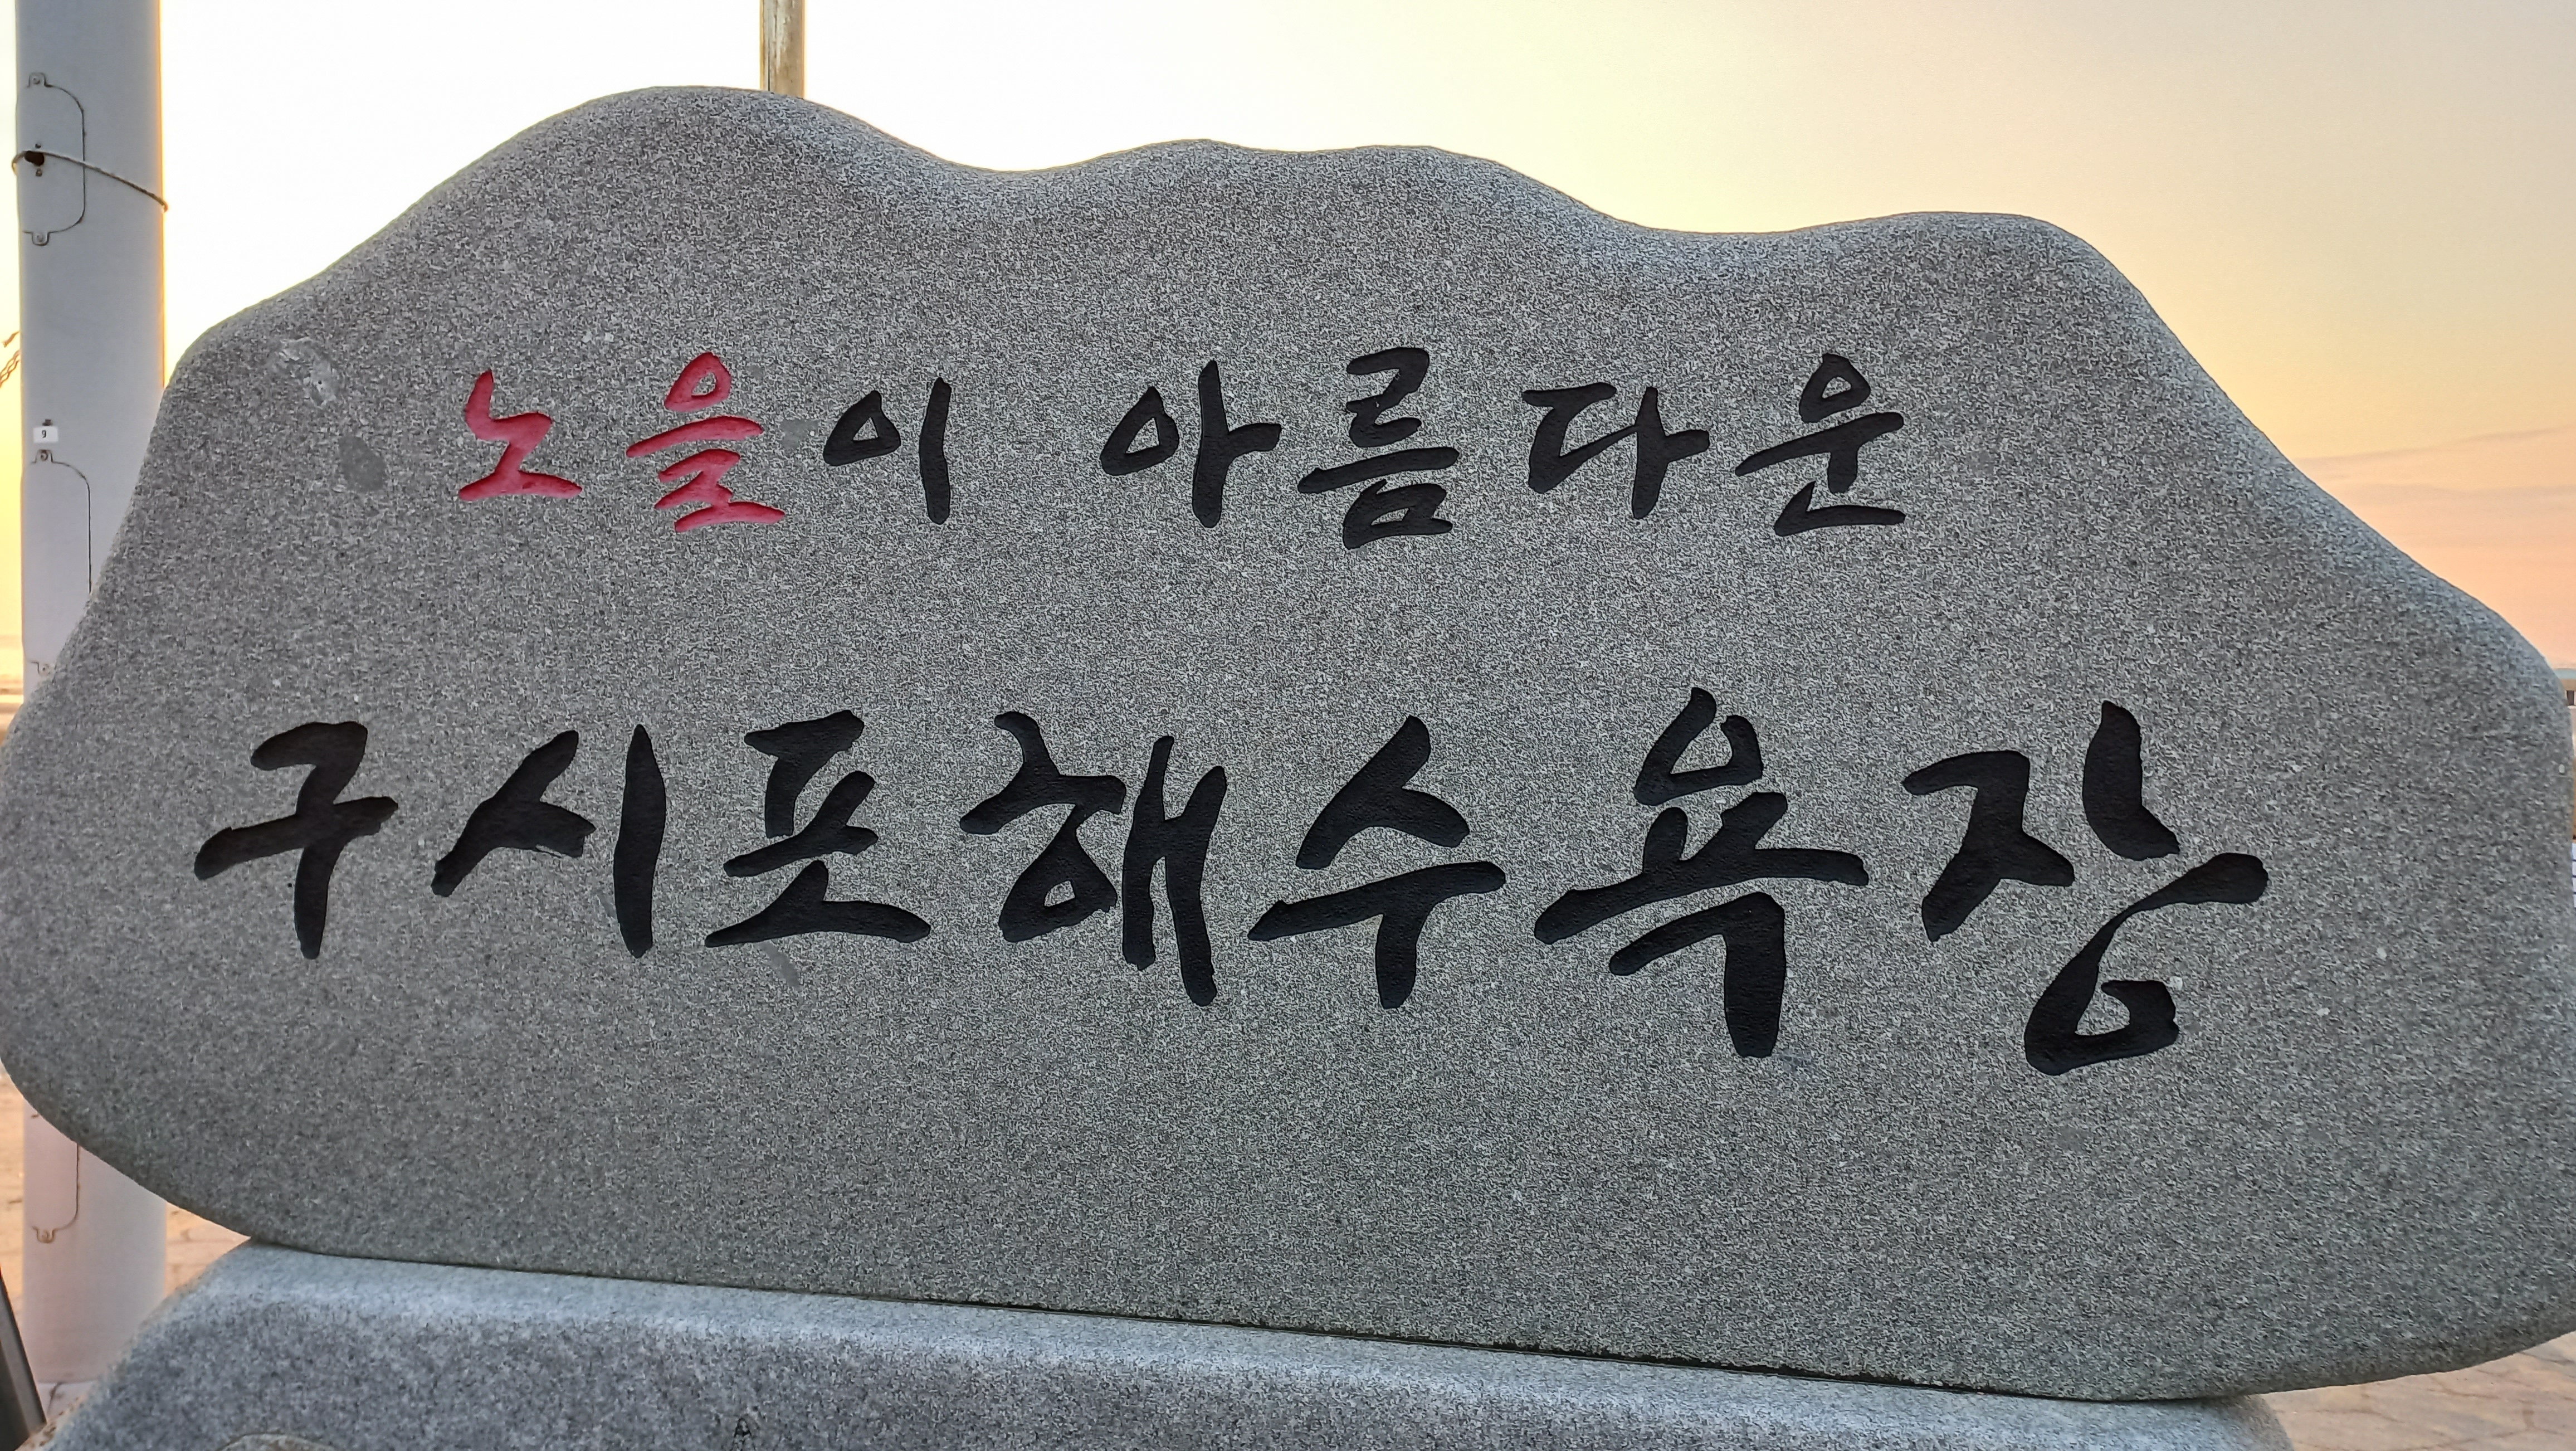 노을이 아름다운
구시포해수욕장
9